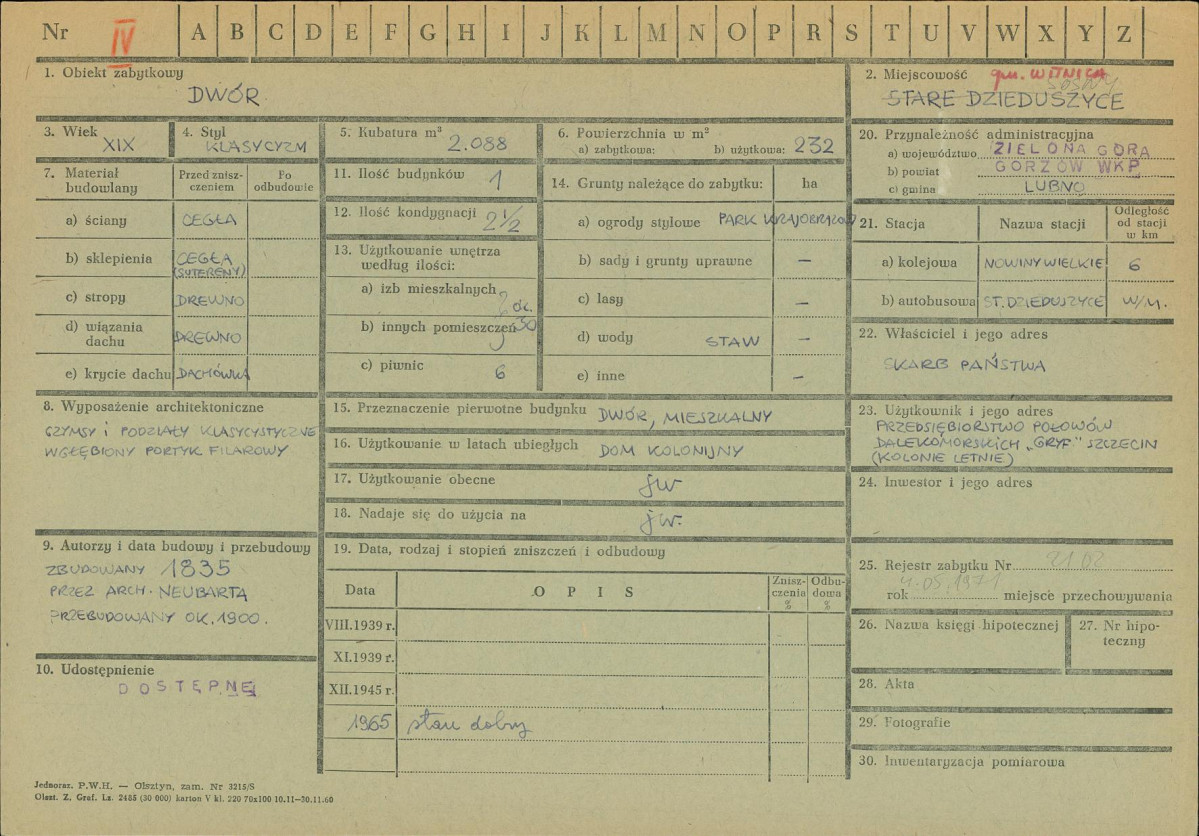 Nr IV A B C D E F G H I J K L M N O P R S T U V W X Y Z
1. Obiekt zabytkowy
DWÓR
2. Miejscowość gm. WITNICA
SOSNY
STARE DZIEDUSZYCE
3. Wiek
XIX
4. Styl
KLASYCYZM
5. Kubatura m³
2.088
6. Powierzchnia w m²
a) zabytkowa: b) użytkowa: 232
7. Materiał budowlany
Przed zniszczeniem
Po odbudowie
a) ściany CEGŁA
b) sklepienia CEGŁA
(SUTERENY)
c) stropy DREWNO
d) wiązania dachu DREWNO
e) krycie dachu DACHÓWKA
8. Wyposażenie architektoniczne
GZYMSY I PODZIAŁY KLASYCYSTYCZNE
WGŁĘBIONY PORTYK FILAROWY
9. Autorzy i data budowy i przebudowy
ZBUDOWANY 1835
PRZEZ ARCH. NEUBARTA
PRZEBUDOWANY OK. 1900.
10. Udostępnienie
DOSTĘPNE
11. Ilość budynków 1
12. Ilość kondygnacji 2½
13. Użytkowanie wnętrza
według ilości:
a) izb mieszkalnych
ok.
b) innych pomieszczeń 30
c) piwnic 6
14. Grunty należące do zabytku: ha
a) ogrody stylowe PARK KRAJOBRAZOWY
b) sady i grunty uprawne —
c) lasy —
d) wody STAW —
e) inne —
15. Przeznaczenie pierwotne budynku DWÓR, MIESZKALNY
16. Użytkowanie w latach ubiegłych DOM KOLONIJNY
17. Użytkowanie obecne jw
18. Nadaje się do użycia na jw.
19. Data, rodzaj i stopień zniszczeń i odbudowy
Data OPIS Zniszczenia % Odbudowa %
VIII.1939 r.
XI.1939 r.
XII.1945 r.
1965 stan dobry
20. Przynależność administracyjna
a) województwo ZIELONA GÓRA
b) powiat GORZÓW WKP
c) gmina LUBNO
21. Stacja Nazwa stacji Odległość od stacji w km
a) kolejowa NOWINY WIELKIE 6
b) autobusowa ST. DZIEDUSZYCE W/M.
22. Właściciel i jego adres
SKARB PAŃSTWA
23. Użytkownik i jego adres
PRZEDSIĘBIORSTWO POŁOWÓW
DALEKOMORSKICH „GRYF" SZCZECIN
(KOLONIE LETNIE)
24. Inwestor i jego adres
25. Rejestr zabytku Nr 2102
rok 4.05.1971 miejsce przechowywania
26. Nazwa księgi hipotecznej
27. Nr hipoteczny
28. Akta
29. Fotografie
30. Inwentaryzacja pomiarowa
Jednoraz. P.W.H. — Olsztyn, zam. Nr 3215/S
Olszt. Z. Graf. Lz. 2485 (30 000) karton V kl. 220 70x100 10.11—30.11.60